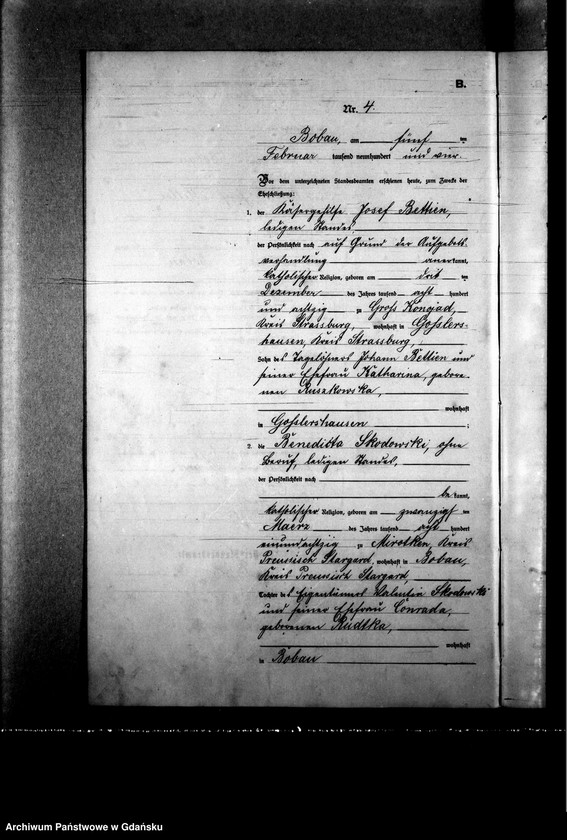 B.
Nr. 4.
Bobau, am fünf ten
Februar tausend neunhundert und vier.
Vor dem unterzeichneten Standesbeamten erschienen heute, zum Zwecke der
Eheschließung:
1. der Käsergehilfe Josef Bettien,
ledigen Standes
der Persönlichkeit nach auf Grund der Aufgebots-
verhandlung anerkannt,
katholischer Religion, geboren am drit ten
Dezember des Jahres tausend acht hundert
und achtzig zu Gross Konojad,
Kreis Strassburg, wohnhaft in Gosslers-
hausen, Kreis Strasburg,
Sohn des Tagelöhners Johann Bettien und
seiner Ehefrau Katharina, gebore-
nen Ruszkowska,
wohnhaft
in Gosslershausen ;
2. die Benedikta Skodowski, ohne
Beruf, ledigen Standes,
der Persönlichkeit nach
be kannt,
katholischer Religion, geboren am zwanzigs ten
Maerz des Jahres tausend acht hundert
einundachtzig zu Mirotken, Kreis
Preussisch Stargard, wohnhaft in Bobau,
Kreis Preussisch Stargard,
Tochter des Eigentümers Valentin Skodowski
und seiner Ehefrau Conrada,
geborenen Radtka,
wohnhaft
in Bobau
Archiwum Państwowe w Gdańsku